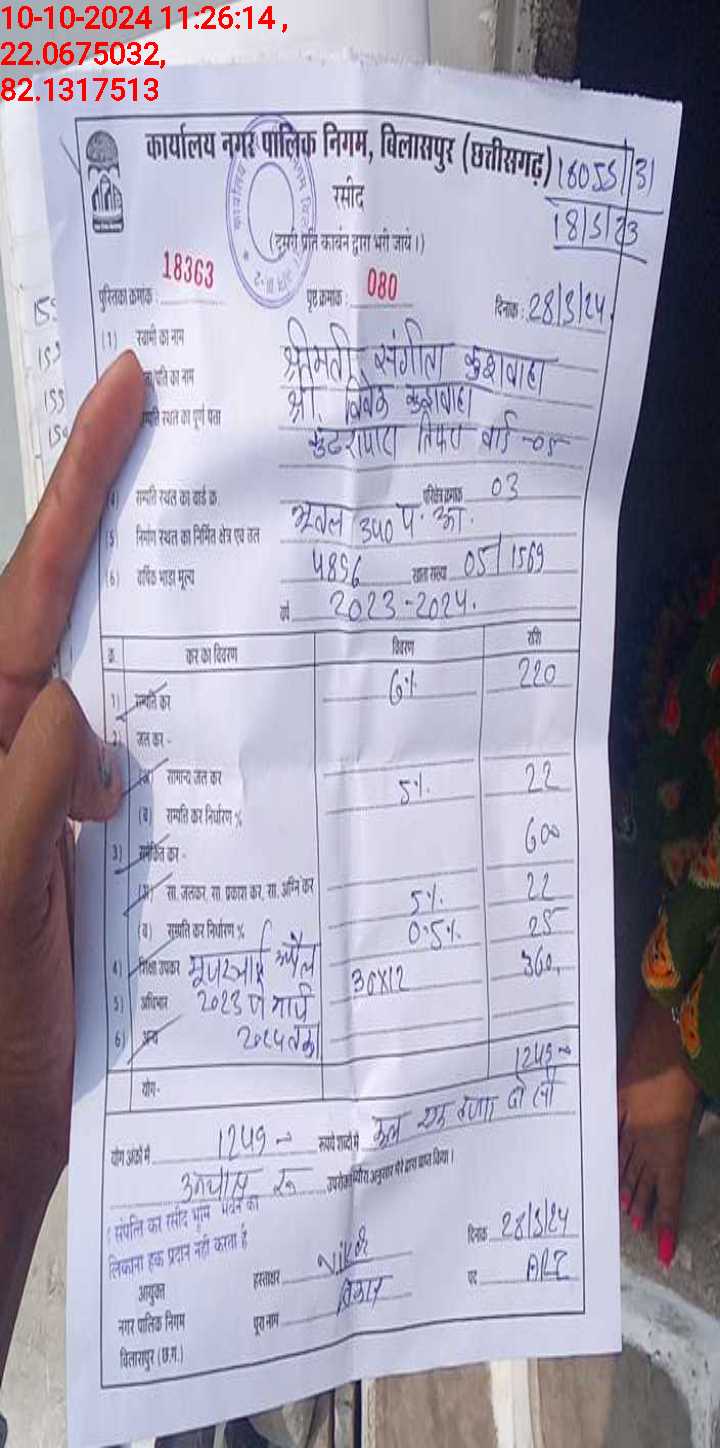 10-10-2024 11:26:14 ,
22.0675032,
82.1317513
कार्यालय नगर पालिक निगम, बिलासपुर (छत्तीसगढ़)
रसीद
18/5/23
(दूसरी प्रति कार्बन द्वारा भरी जाये।)
पुस्तिका क्रमांक : 18363 पृष्ठ क्रमांक : 080 दिनांक : 28/3/24
(1) स्वामी का नाम श्रीमती संगीता कुशवाहा
पति का नाम श्री. विवेक कुशवाहा
स्थल का पूर्ण पता तिफरा वार्ड -05
सम्पत्ति स्थल का वार्ड क्र. परिक्षेत्र क्रमांक 03
(5) निर्माण स्थल का निर्मित क्षेत्र एवं तल 340
(6) वार्षिक भाड़ा मूल्य 4896 खाता संख्या 05/1569
वर्ष 2023-2024.
क्र. कर का विवरण विवरण राशि
1) सम्पत्ति कर 6% 220
2) जल कर -
सामान्य जल कर 5% 22
(ब) सम्पत्ति कर निर्धारण %
3) समेकित कर - 600
(अ) सा. जलकर, सा. प्रकाश कर, सा. अग्नि कर 5% 22
(ब) सम्पत्ति कर निर्धारण % 0.5% 25
4) शिक्षा उपकर 30X12 360
5) अधिभार 2023
6) अन्य
1249
योग-
योग अंकों में 1249 रूपये शब्दों में कुल एक हजार दो सौ
उनचास रू उपरोक्त ब्यौरा अनुसार मेरे द्वारा प्राप्त किया।
संपत्ति कर रसीद भूमि भवन का
हक प्रदान नहीं करता है
दिनांक 28/3/24
आयुक्त हस्ताक्षर पद
नगर पालिक निगम पूरा नाम
बिलासपुर (छ.ग.)